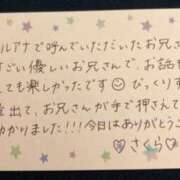 ルアナで呼んでいただいたお兄さ
すごい優しいお兄さんで、お話
ても楽しかったです☺ びっくりす
出て、お兄さんが手で押さえて
かりました!!!今日はありがとう
♡さくら♡